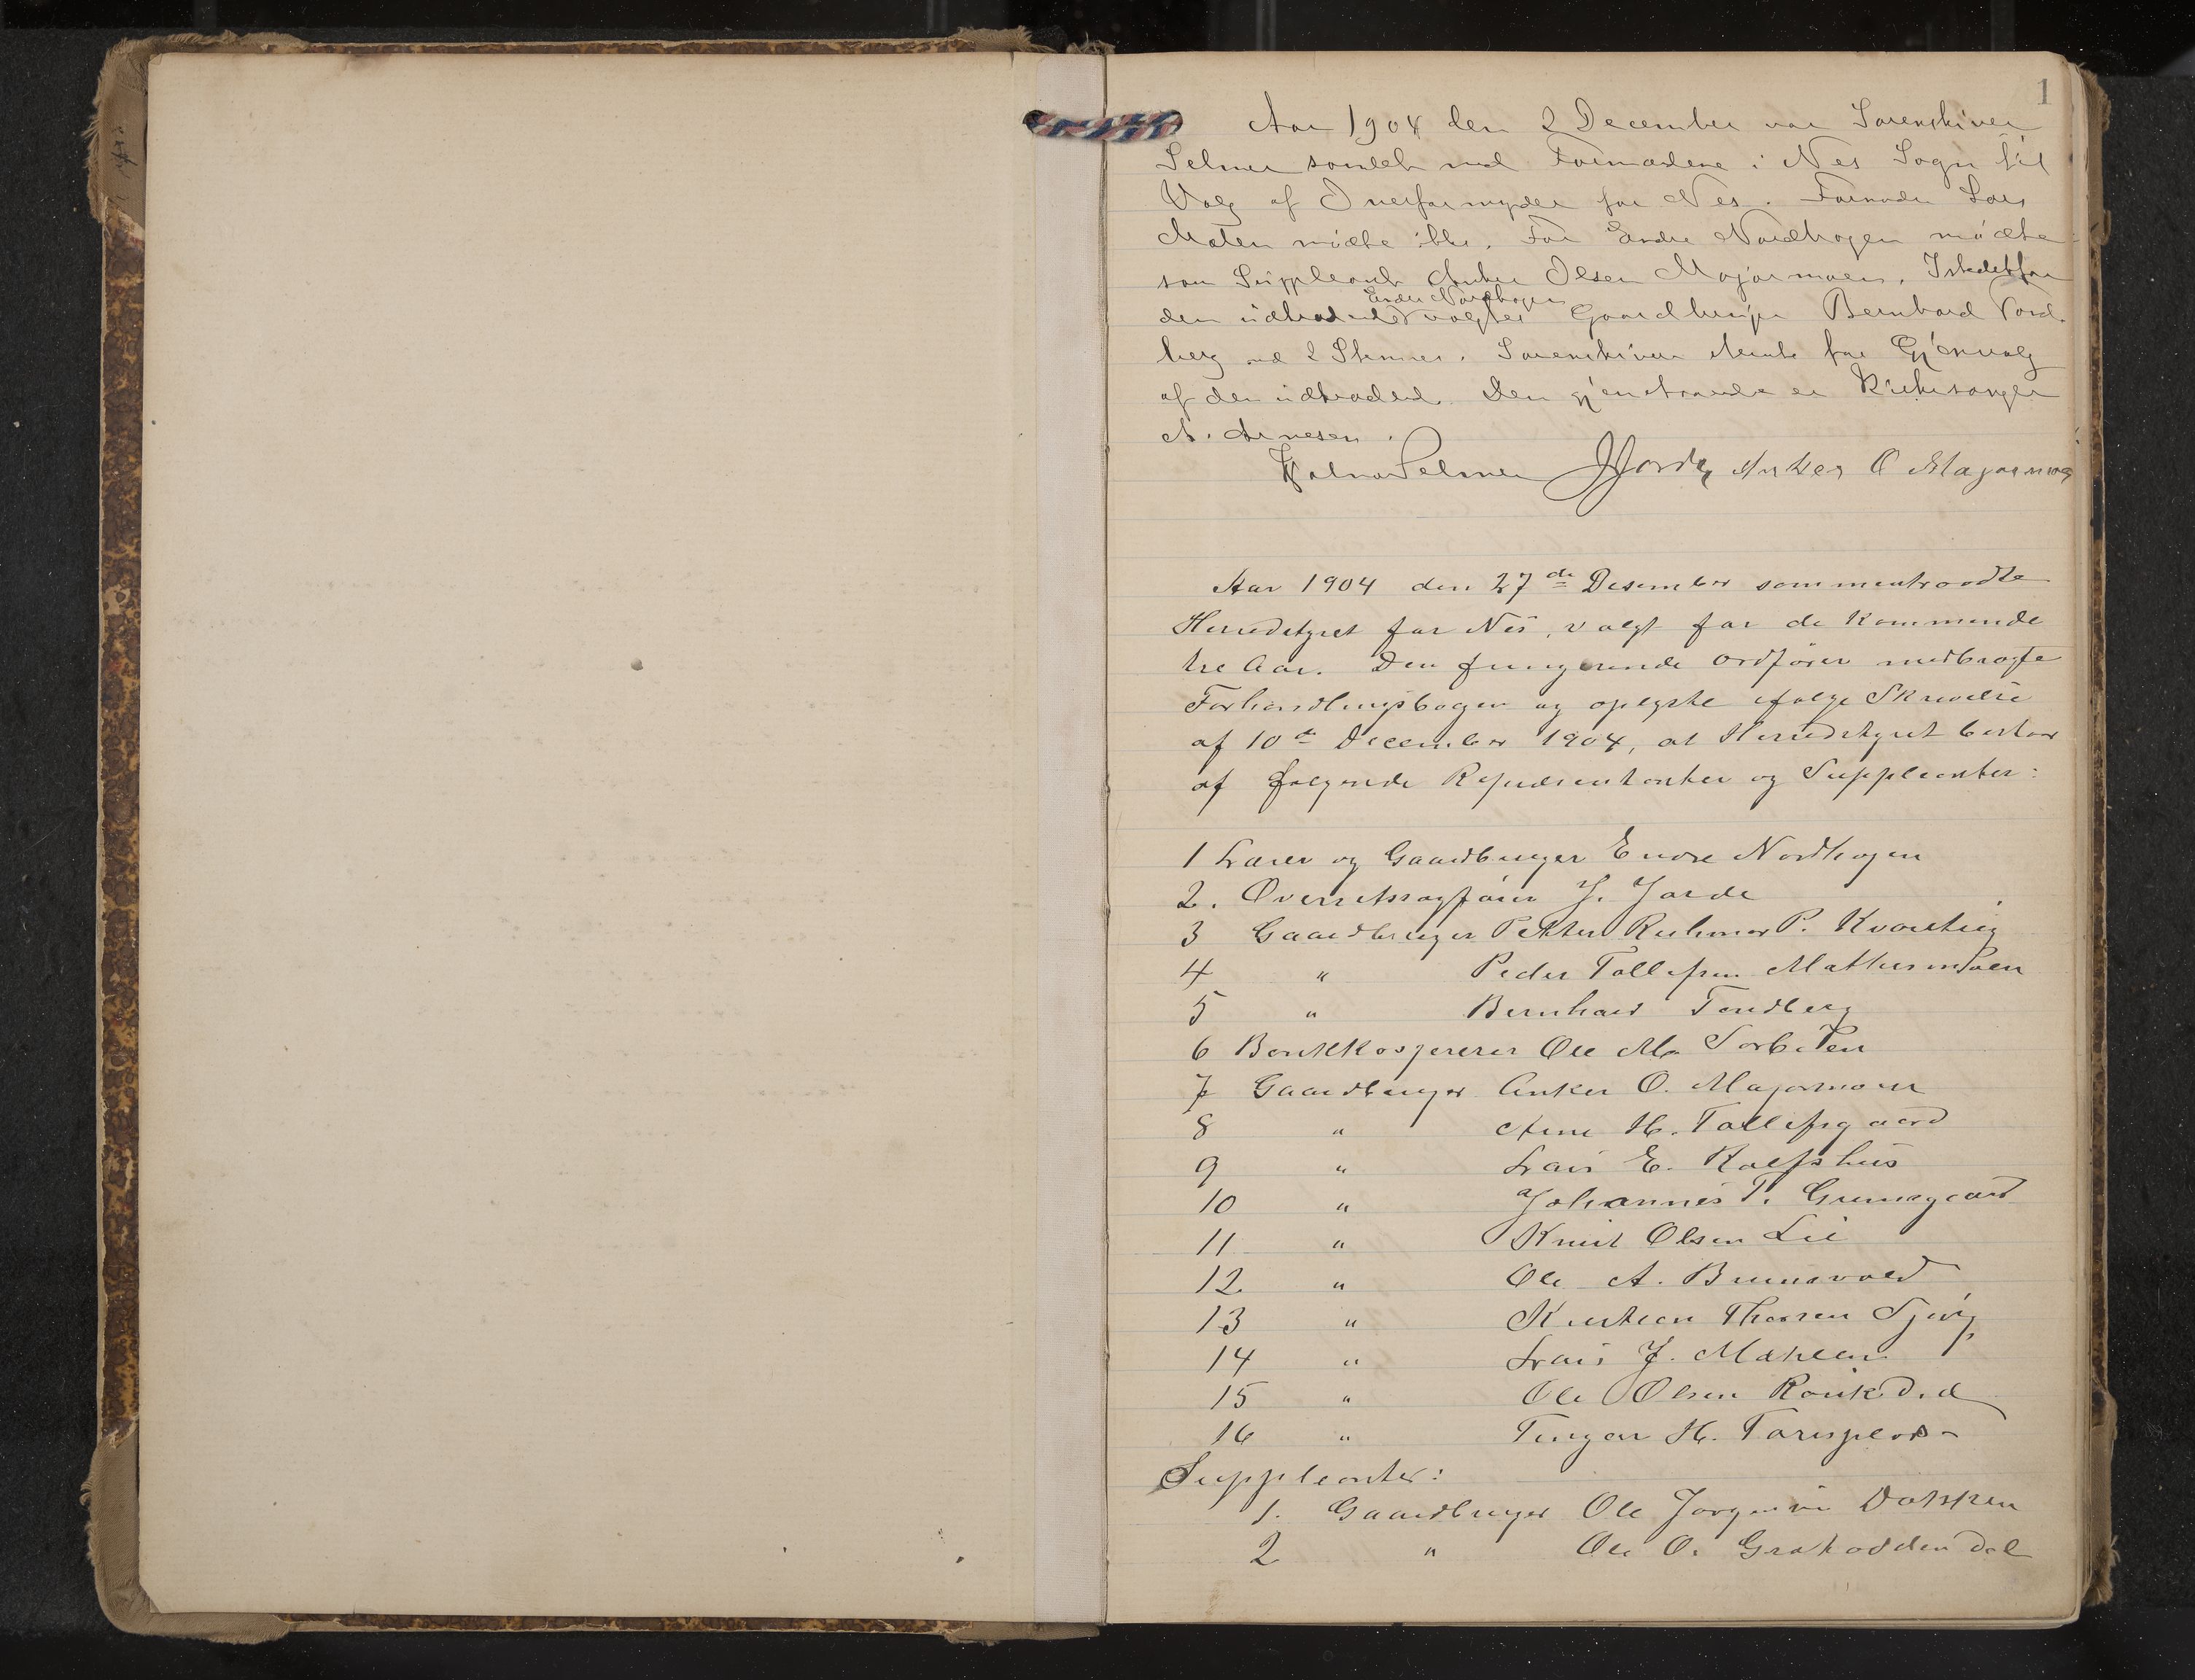 1
Aar 1904 den 2 December var Sorenskriver
Selmer samlet med Formændene i Nes Sogn til
Valg af Overformynder for Nes. Formand Lars
Mølen mødte ikke. For Endre Nordhagen mødte
som Suppleant Anker Olsen Majormoen. Istedetfor
Endre Nordhagen
den udtrædende valgtes Gaardbruger Bernhard Tord
berg med 2 Stemmer. Sorenskriveren stemte for Gjenvalg
af den udtrædende. Den gjenstaaende er Kirkesanger
A. Arnesen.
Selmer JJorde Anker O Majormoen
Aar 1904 den 27de Desember sammentraadte
Herredstyret for Nes, valgt for de kommende
tre Aar. Den fungerende Ordfører medbragte
Forhandlingsbogen og oplyste ifølge Skrivelse
af 10de December 1904, at Herredstyret bestaar
af følgende Repræsentanter og Suppleanter:
1 Lærer og Gaardbruger Endre Nordhagen
2. Overretssagfører J. Jorde
3 Gaardbruger Petter P.
4 " Peder Tollefsen
5 " Bernhard Tordberg
6 Bankkasserer Ole M.
7 Gaardbruger Anker O. Majormoen
8 " Arne H. Tollefsgaard
9 " Lars E. Rolfshus
10 " Johannes T.
11 " Knut Olsen Lie
12 " Ole A. Brunsvold
13 " Kristian Thorsen
14 " Lars J.
15 " Ole Olsen
16 " H.
Suppleanter:
1. Gaardbruger Ole Jørgensen Dokken
2 " Ole O.